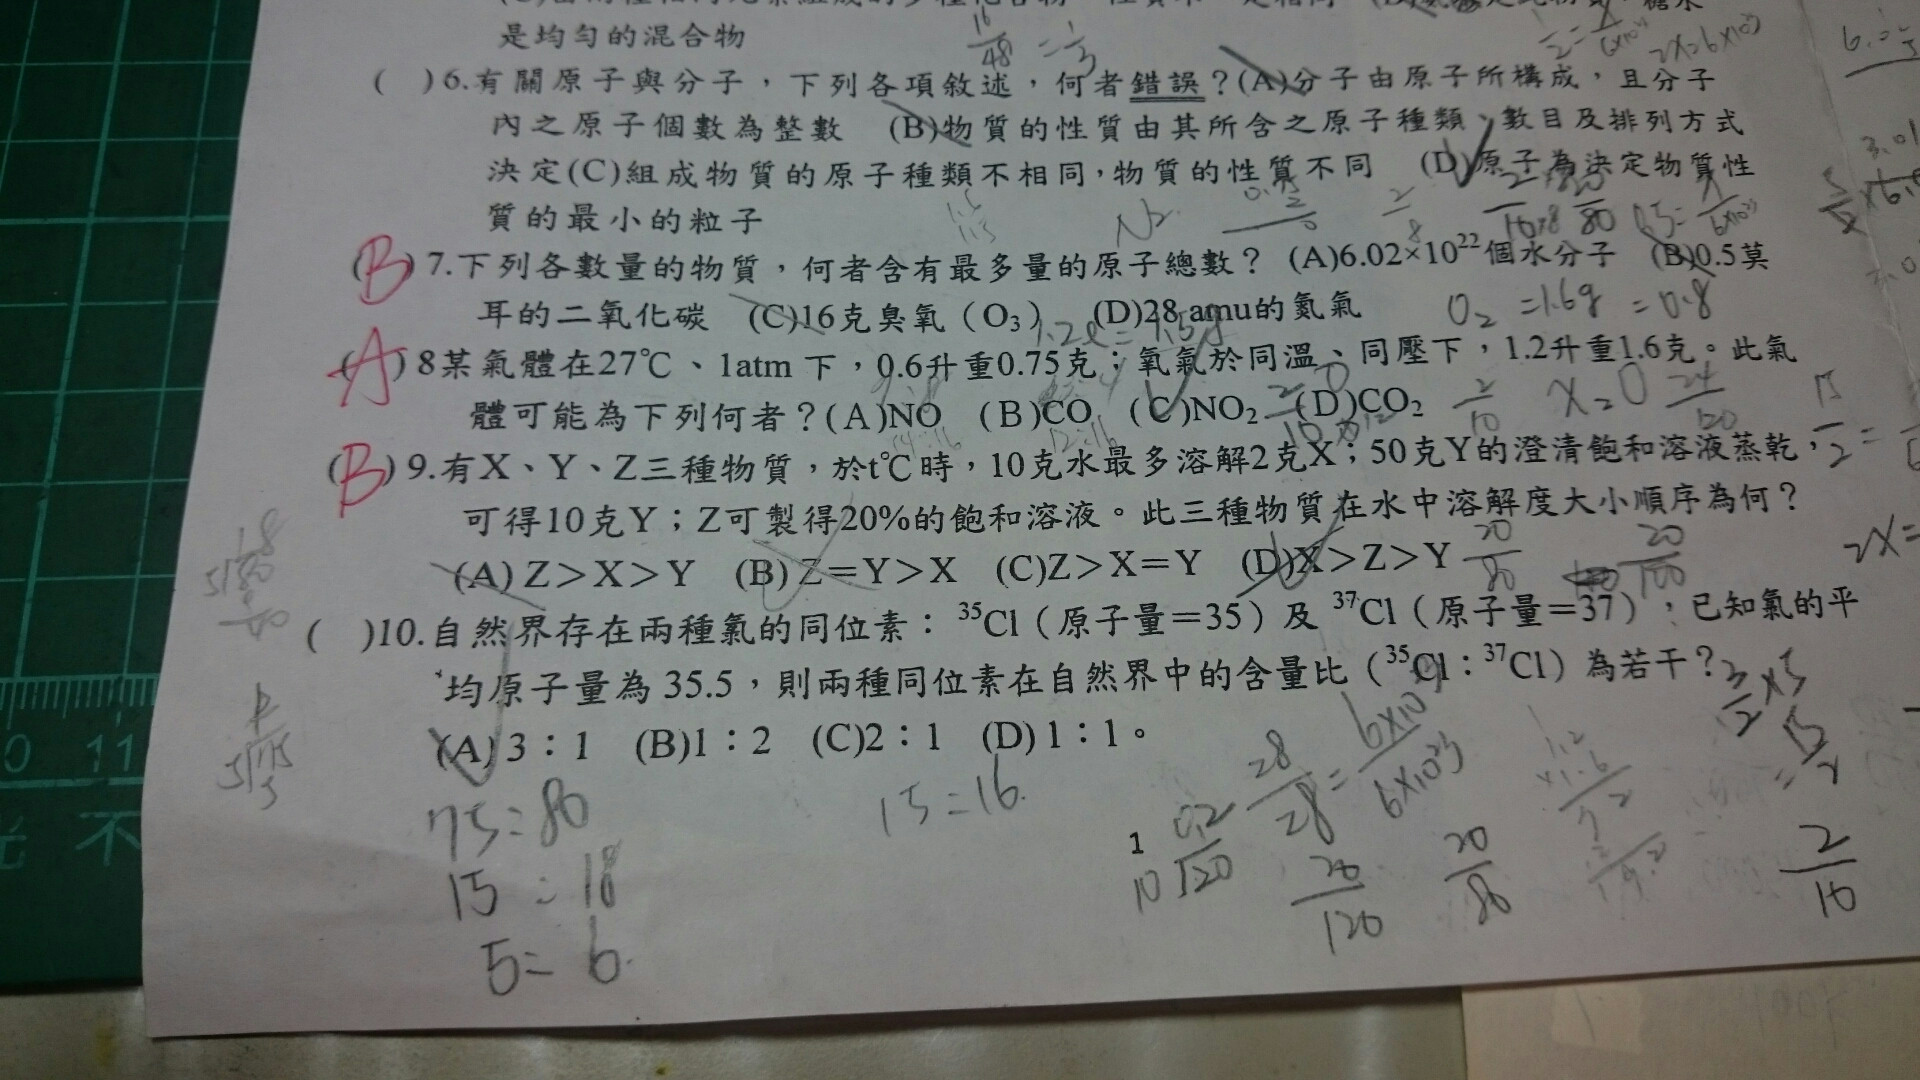 是均勻的混合物
16/48 = 1/3
( )6.有關原子與分子，下列各項敘述，何者錯誤？(A)分子由原子所構成，且分子
內之原子個數為整數 (B)物質的性質由其所含之原子種類、數目及排列方式
決定(C)組成物質的原子種類不相同，物質的性質不同 (D)原子為決定物質性
質的最小的粒子
N2
(B)7.下列各數量的物質，何者含有最多量的原子總數？ (A)6.02×10²²個水分子 (B)0.5莫
耳的二氧化碳 (C)16克臭氧（O₃） (D)28 amu的氮氣
O2 =1.6g =0.8
(A)8某氣體在27℃、1atm 下，0.6升重0.75克；氧氣於同溫、同壓下，1.2升重1.6克。此氣
體可能為下列何者？(A)NO (B)CO (C)NO₂ (D)CO₂
2/10 24/120
(B)9.有X、Y、Z三種物質，於t℃時，10克水最多溶解2克X；50克Y的澄清飽和溶液蒸乾，
可得10克Y；Z可製得20%的飽和溶液。此三種物質在水中溶解度大小順序為何？
(A) Z＞X＞Y (B) Z＝Y＞X (C)Z＞X＝Y (D)X＞Z＞Y
20/80 20/100
( )10.自然界存在兩種氯的同位素：³⁵Cl（原子量＝35）及 ³⁷Cl（原子量＝37），已知氯的平
均原子量為 35.5，則兩種同位素在自然界中的含量比（³⁵Cl：³⁷Cl）為若干？
(A) 3：1 (B)1：2 (C)2：1 (D) 1：1。
3/2 ×5
= 15/2
28/28 = 6×10²³/6×10²³
75=80
15=16.
15=18
5=6.
20/120
20/80
2/10
0 11
不